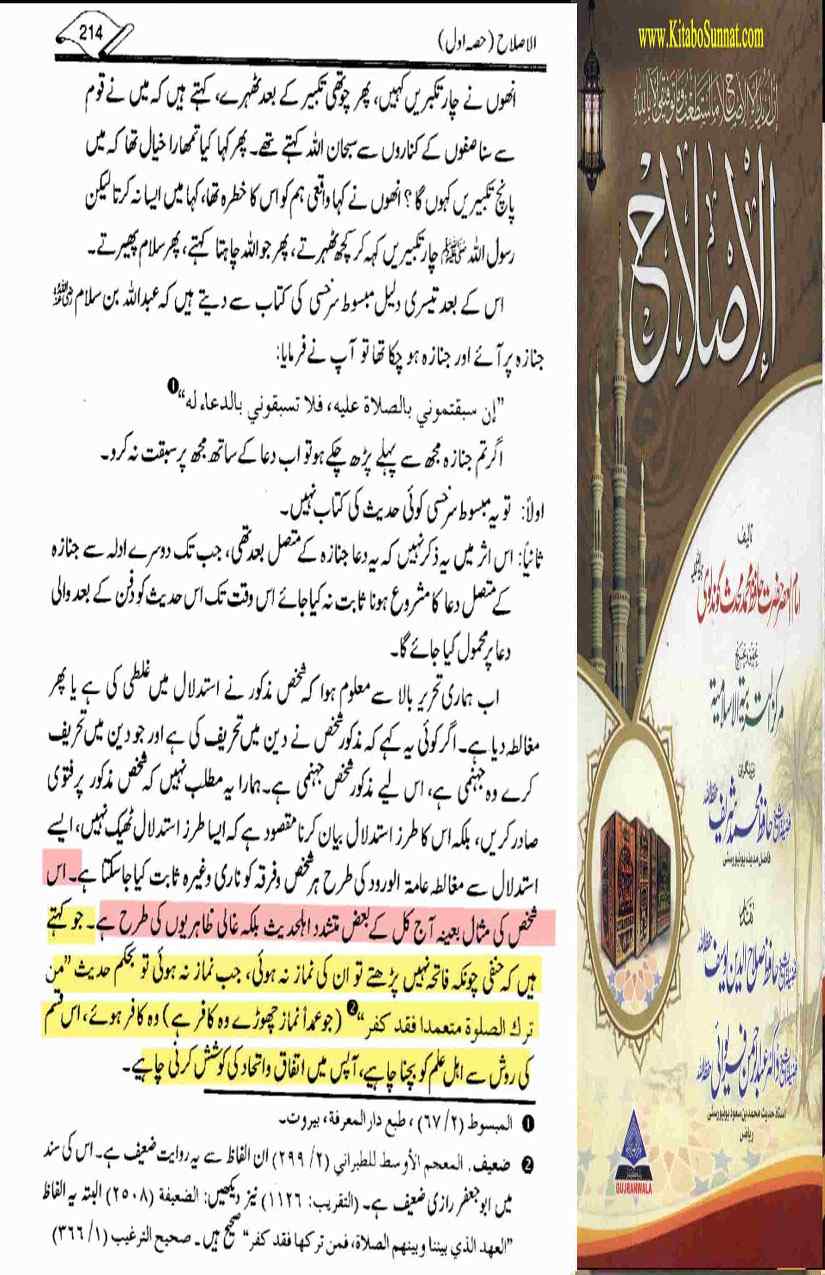 الاصلاح (حصہ اول)
214
انھوں نے چار تکبیریں کہیں، پھر چوتھی تکبیر کے بعد ٹھہرے، کہتے ہیں کہ میں نے قوم
سے سنا صفوں کے کناروں سے سبحان اللہ کہتے تھے۔ پھر کہا کیا تمھارا خیال تھا کہ میں
پانچ تکبیریں کہوں گا؟ انھوں نے کہا واقعی ہم کو اس کا خطرہ تھا، کہا میں ایسا نہ کرتا لیکن
رسول اللہ ﷺ چار تکبیریں کہہ کر کچھ ٹھہرتے، پھر جو اللہ چاہتا کہتے، پھر سلام پھیرتے۔
اس کے بعد تیسری دلیل مبسوط سرخسی کی کتاب سے دیتے ہیں کہ عبداللہ بن سلام رضی اللہ عنہ
جنازہ پر آئے اور جنازہ ہو چکا تھا تو آپ نے فرمایا:
”إن سبقتموني بالصلاة عليه، فلا تسبقوني بالدعاء له“❶
اگر تم جنازہ مجھ سے پہلے پڑھ چکے ہو تو اب دعا کے ساتھ مجھ پر سبقت نہ کرو۔
اولاً: تو یہ مبسوط سرخسی کوئی حدیث کی کتاب نہیں۔
ثانیاً: اس اثر میں یہ ذکر نہیں کہ یہ دعا جنازہ کے متصل بعد تھی، جب تک دوسرے ادلہ سے جنازہ
کے متصل دعا کا مشروع ہونا ثابت نہ کیا جائے اس وقت تک اس حدیث کو دفن کے بعد والی
دعا پر محمول کیا جائے گا۔
اب ہماری تحریر بالا سے معلوم ہوا کہ شخص مذکور نے استدلال میں غلطی کی ہے یا پھر
مغالطہ دیا ہے۔ اگر کوئی یہ کہے کہ مذکور شخص نے دین میں تحریف کی ہے اور جو دین میں تحریف
کرے وہ جہنمی ہے، اس لیے مذکور شخص جہنمی ہے۔ ہمارا یہ مطلب نہیں کہ شخص مذکور پر فتویٰ
صادر کریں، بلکہ اس کا طرز استدلال بیان کرنا مقصود ہے کہ ایسا طرز استدلال ٹھیک نہیں، ایسے
استدلال سے مغالطہ عامۃ الورود کی طرح ہر شخص و فرقہ کو ناری وغیرہ ثابت کیا جاسکتا ہے۔ اس
شخص کی مثال بعینہ آج کل کے بعض متشدد اہلحدیث بلکہ غالی ظاہریوں کی طرح ہے۔ جو کہتے
ہیں کہ حنفی چونکہ فاتحہ نہیں پڑھتے تو ان کی نماز نہ ہوئی، جب نماز نہ ہوئی تو بحکم حدیث ”من
ترك الصلوة متعمدا فقد كفر“❷ (جو عمداً نماز چھوڑے وہ کافر ہے) وہ کافر ہوئے، اس قسم
کی روش سے اہل علم کو بچنا چاہیے، آپس میں اتفاق و اتحاد کی کوشش کرنی چاہیے۔
❶ المبسوط (٢/ ٦٧)، طبع دار المعرفة، بيروت۔
❷ ضعیف. المعجم الأوسط للطبراني (٢/ ٢٩٩) ان الفاظ سے یہ روایت ضعیف ہے۔ اس کی سند
میں ابو جعفر رازی ضعیف ہے۔ (التقريب: ١١٢٦) نیز دیکھیں: الضعيفة (٢٥٠٨) البتہ یہ الفاظ
”العهد الذي بيننا وبينهم الصلاة، فمن تركها فقد كفر“ صحیح ہیں۔ صحيح الترغيب (١/ ٣٦٦)
www.KitaboSunnat.com
إن أريد إلا الإصلاح ما استطعت وما توفيقي إلا بالله
الإصلاح
تالیف
امام العصر حضرت حافظ محمد محدث گوندلوی
مرکز التربیۃ الاسلامیۃ
حافظ محمد شریف
فاضل مدینہ یونیورسٹی
حافظ صلاح الدین یوسف
ڈاکٹر عبدالرحمن فریوائی
استاذ حدیث محمد بن سعود یونیورسٹی
ریاض
GUJRANWALA